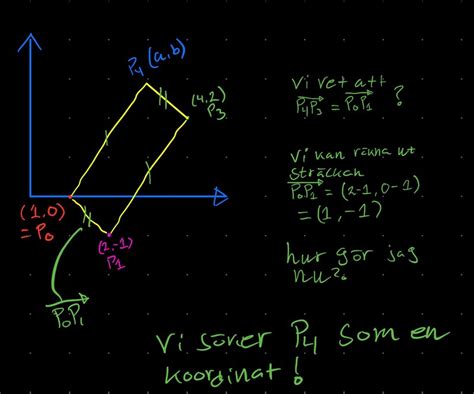 P₄ (a,b)
(4,2)
P₃
(1,0)
= P₀
(2,-1)
P₁
P₀P₁
Vi vet att
P₄P₃ = P₀P₁ ?
Vi kan räkna ut
sträckan
P₀P₁ = (2-1, 0-1)
= (1, -1)
hur gör jag
nu?
Vi söker P₄ som en
koordinat!